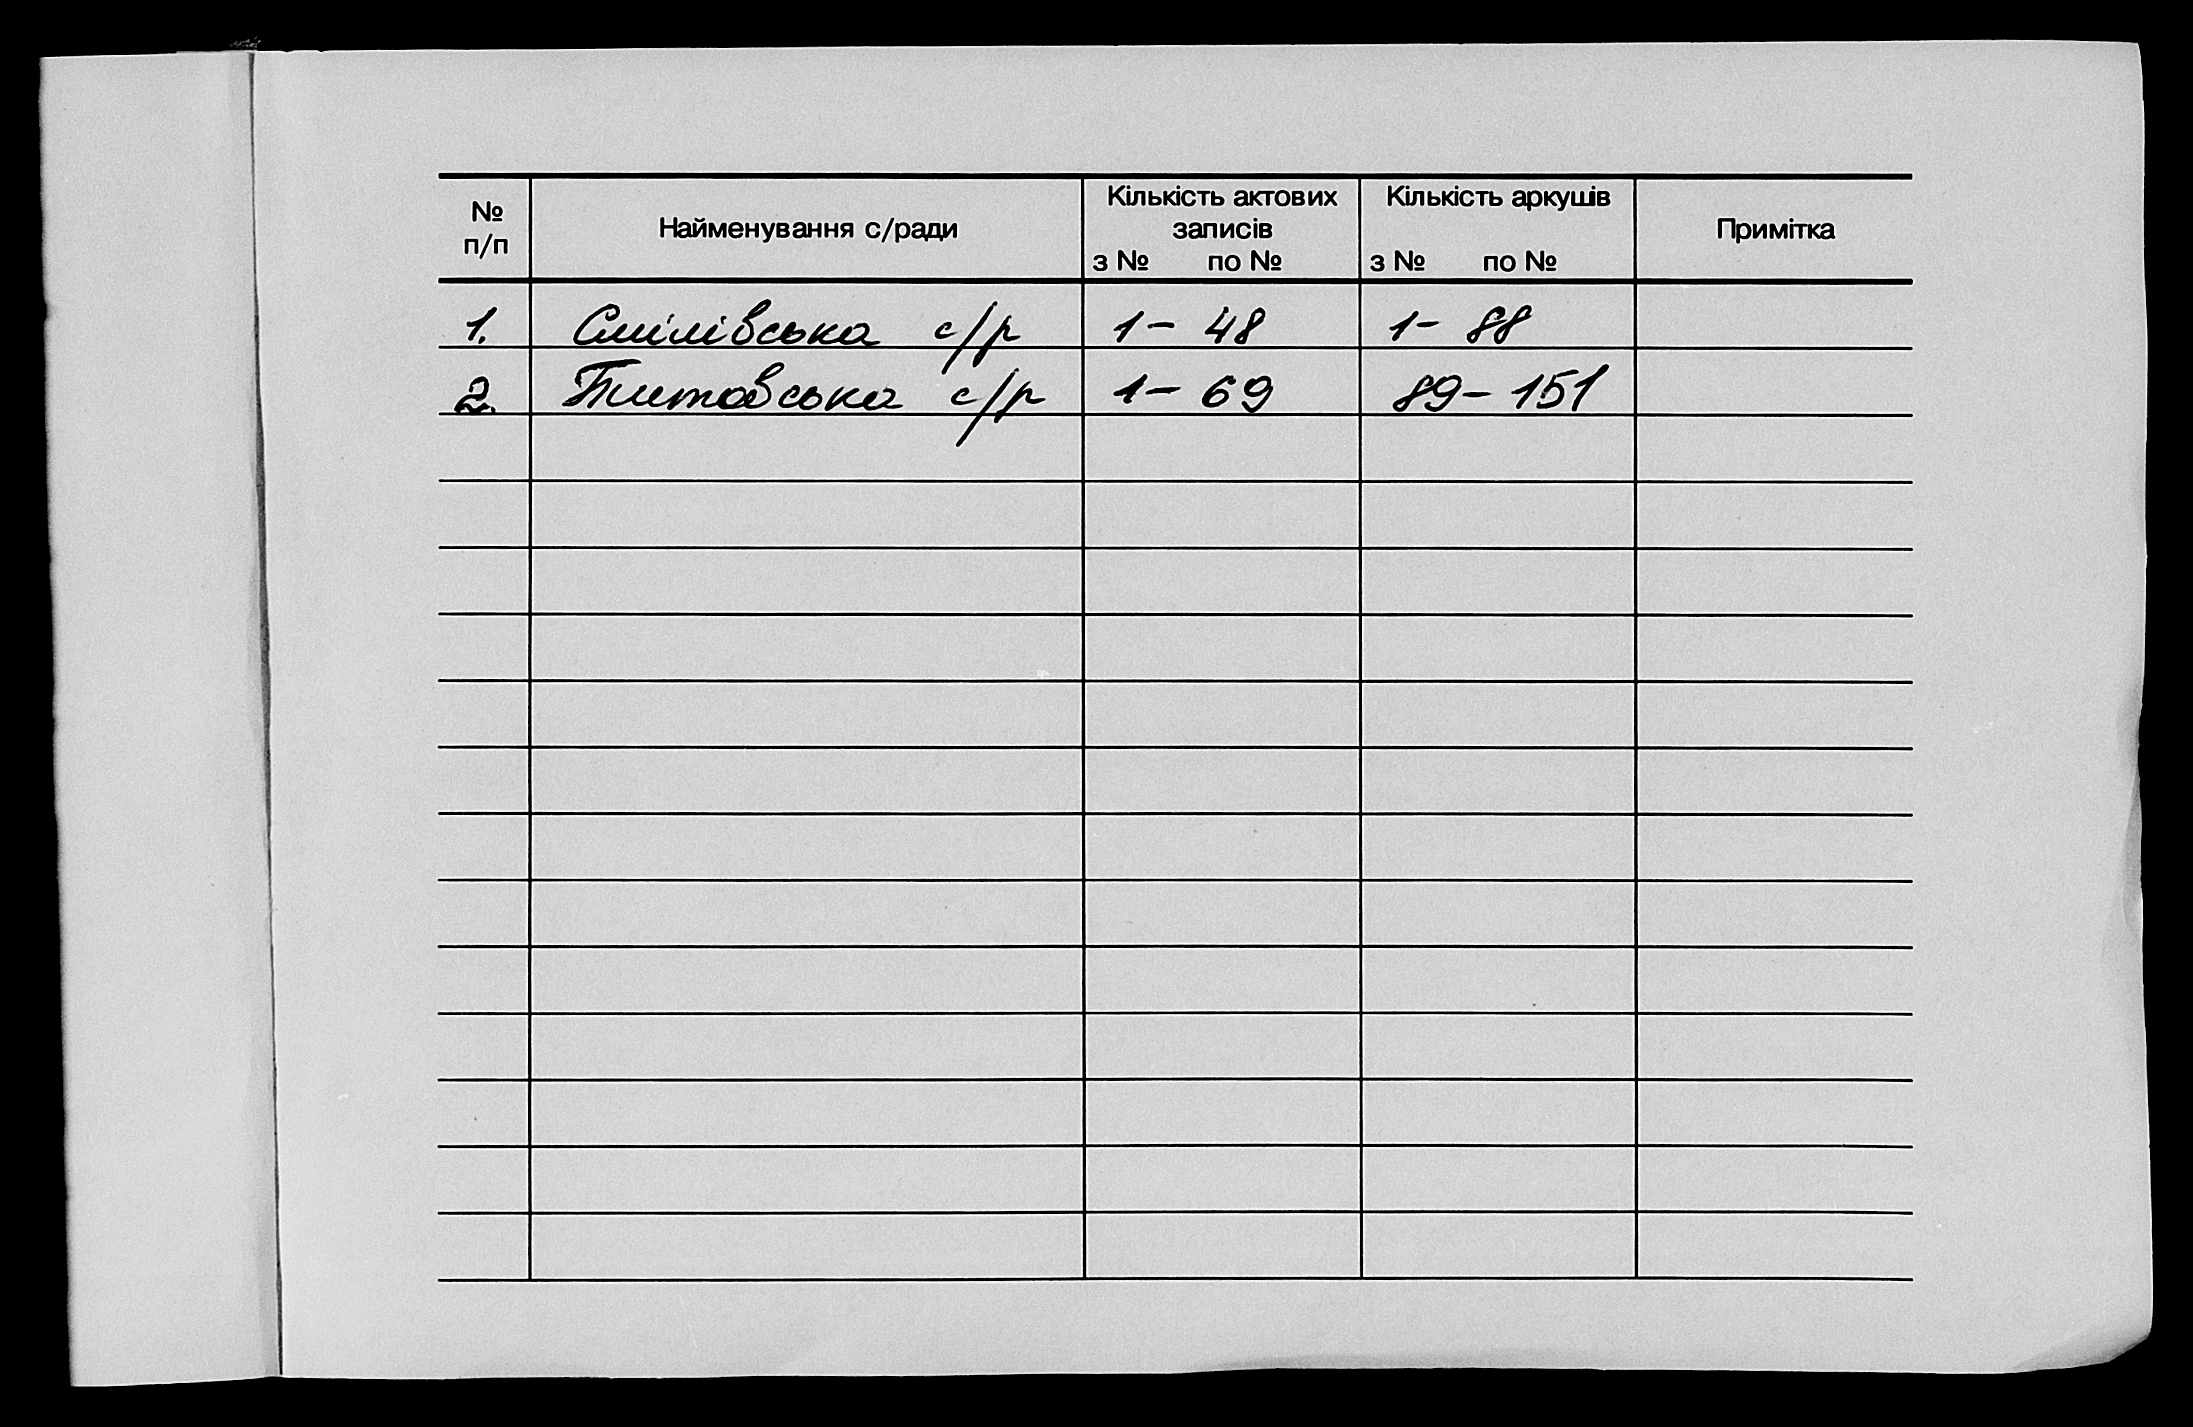 № п/п Найменування с/ради Кількість актових записів з № по № Кількість аркушів з № по № Примітка
1. Смілівська с/р 1 - 48 1 - 88
2. Титовська с/р 1 - 69 89 - 151